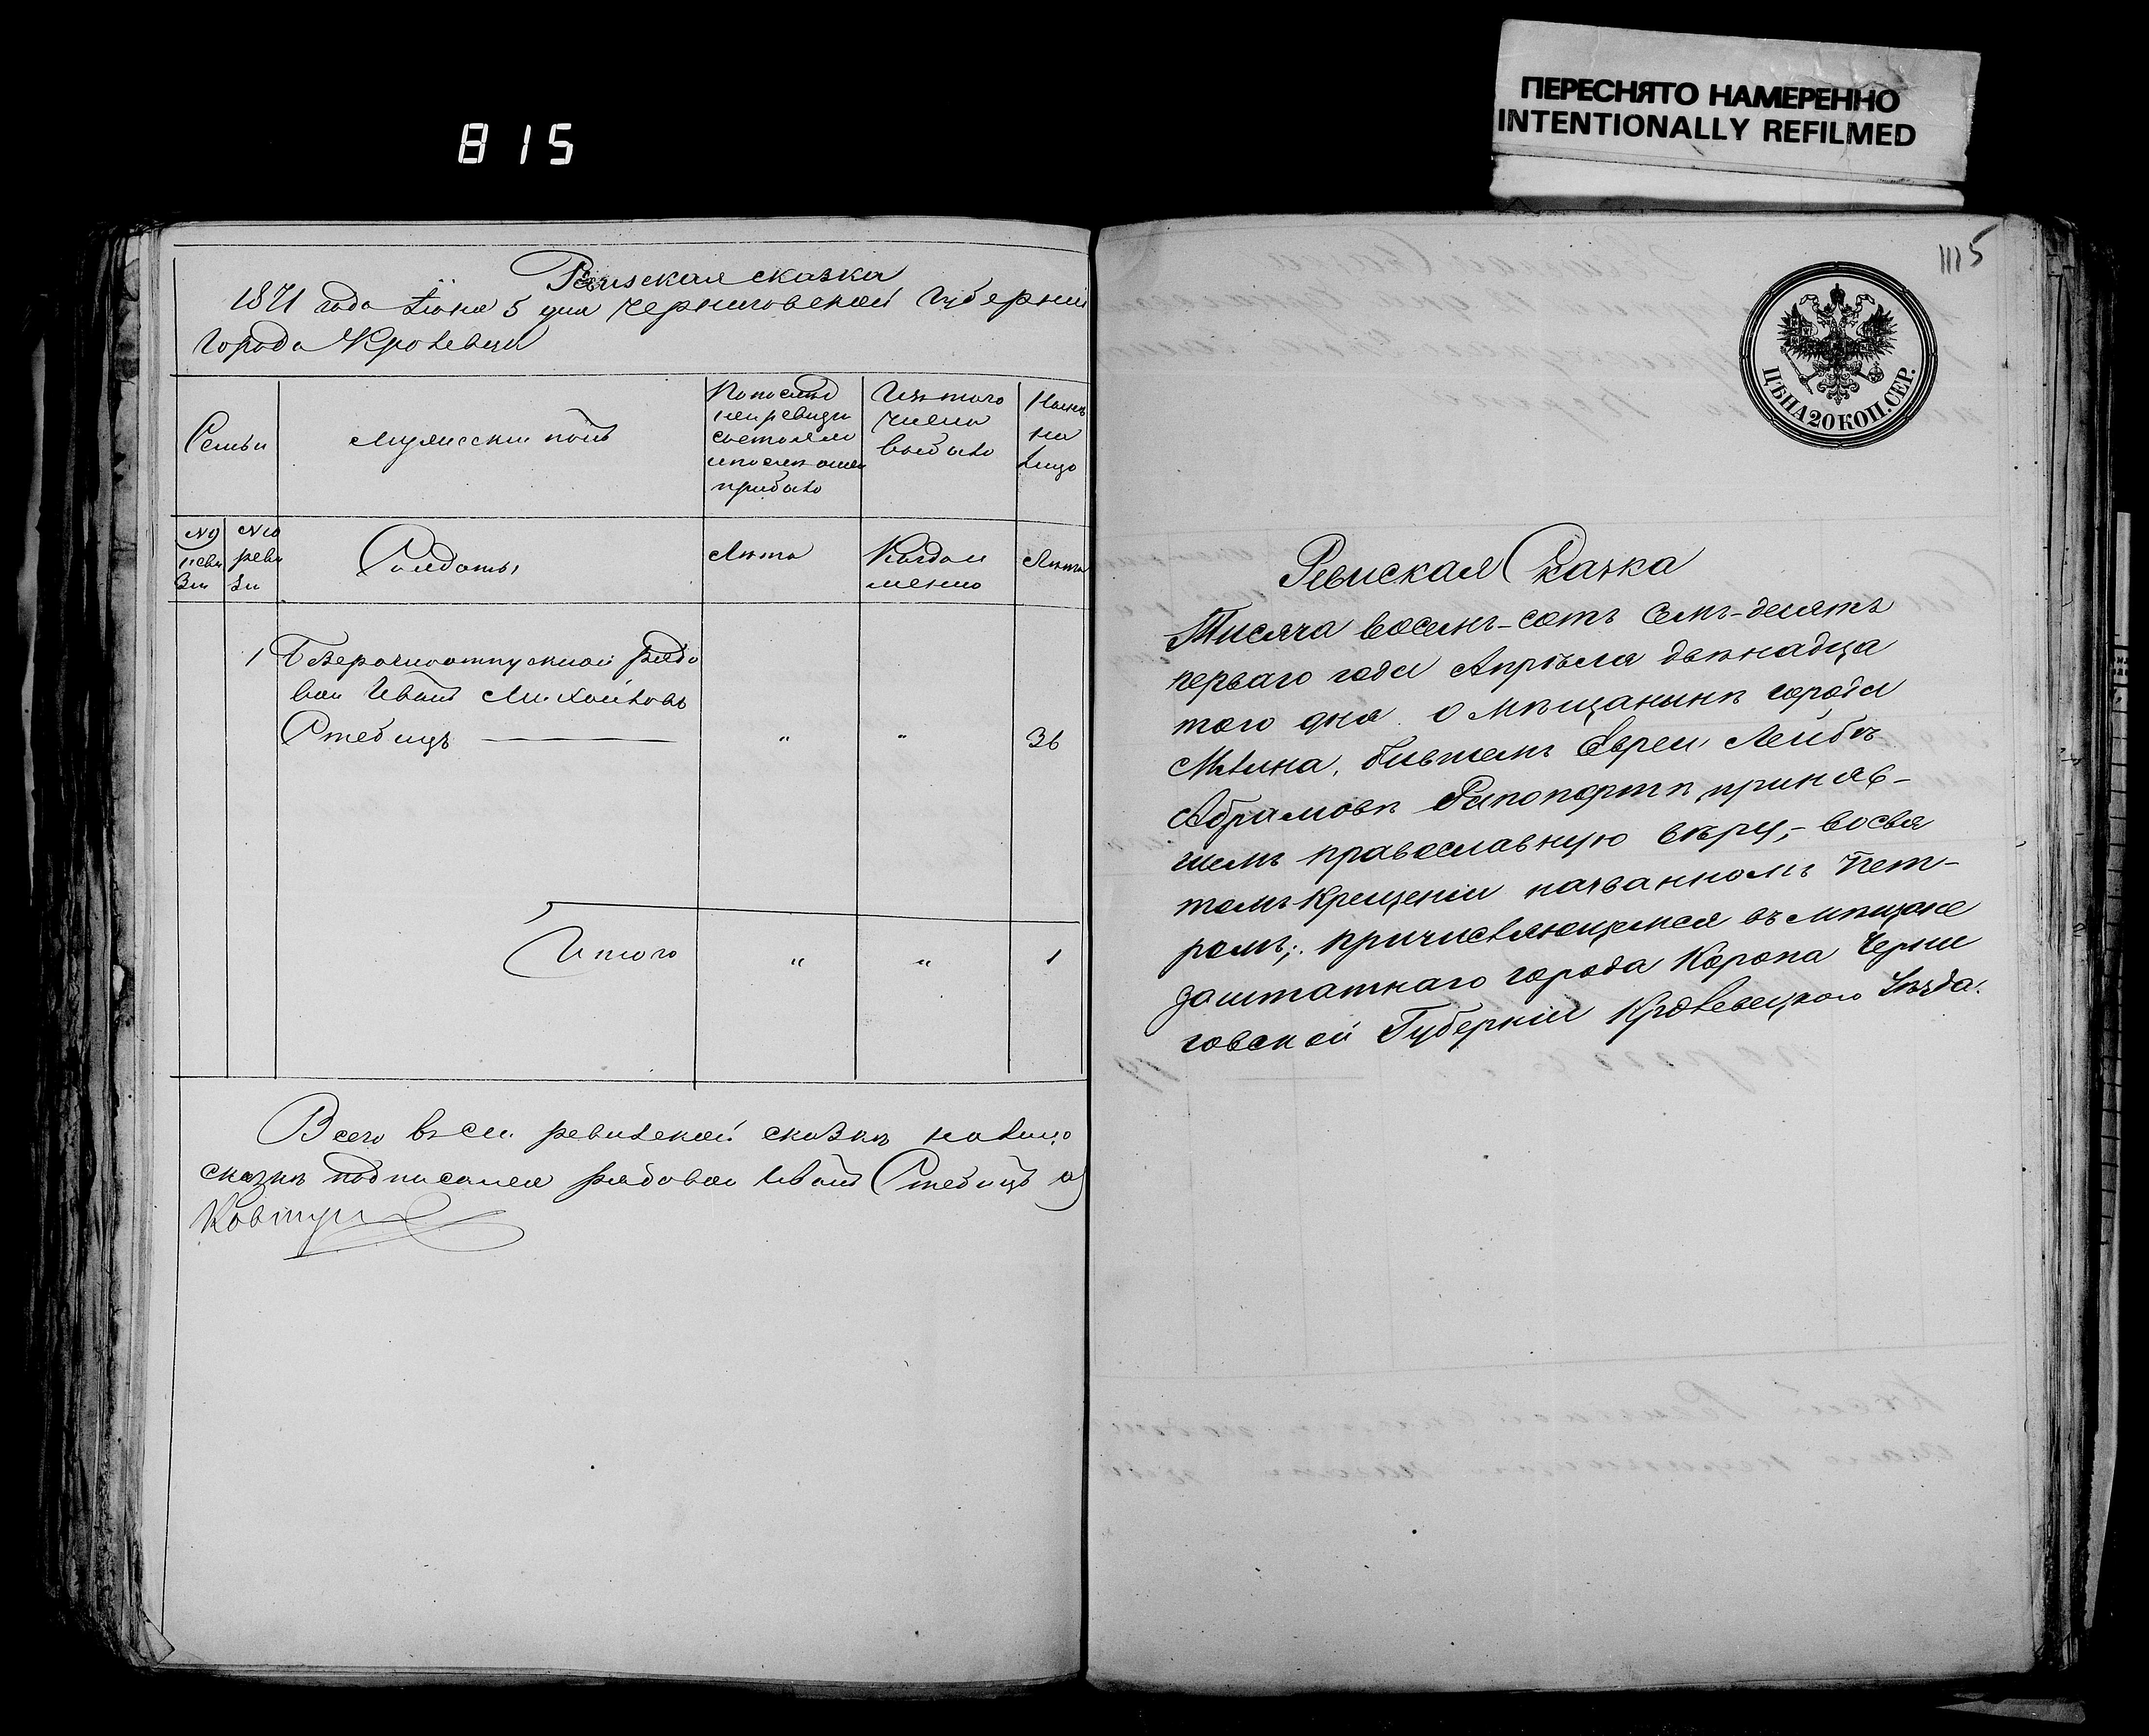 815
ПЕРЕСНЯТО НАМЕРЕННО
INTENTIONALLY REFILMED
Ревизская сказка
1871 года Іюня 5 дня Черниговской Губерніи
Города Кролевца
Семьи
Мужескій полъ
По послѣд
ней ревизіи
состояло
и послѣ оной
прибыло
Изъ того
числа
выбыло
Нынѣ
на
лицо
№
реви
зіи
№
реви
зіи
Солдаты
Лѣта
Когда и
менно
Лѣта
1 Безсрочноотпускной рядо
вой Иванъ Михайловъ
Стебицъ — " " 36
Итого " " 1
Всего въ сей ревизской сказкѣ на лицо
сказкѣ подписался рядовой Иванъ Стебицъ а
1115
ЦѢНА 20 КОП. СЕР.
Ревиская Сказка
Тисяча восемь-сотъ Семь-десятъ
перваго года Апрѣля двѣнадца
того дня. О Мѣщанинѣ города
Мглина, бывшемъ Евреи Лейбѣ
Абрамовѣ Рапопортѣ, приняв-
шемъ православную вѣру,- во свя
томъ Крещеніи названномъ Пет-
ромъ;. причисляющемся въ мѣщане
заштатнаго города Коропа Черни
говской Губерніи Кролевецкого Уѣзда.